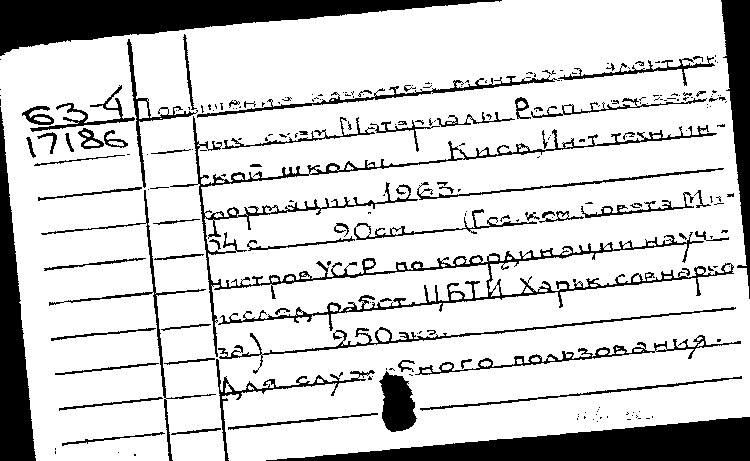 63-4 Повышение качества монтажа электрон-
17186
ных схем. Материалы Респ. межзавод-
ской школы. Киев, Ин-т техн. ин-
формации, 1963.
54 с. 20 см. (Гос. ком. Совета Ми-
нистров УССР по координации науч.-
исслед. работ. ЦБТИ Харьк. совнархо-
за). 250 экз.
Для служебного пользования.